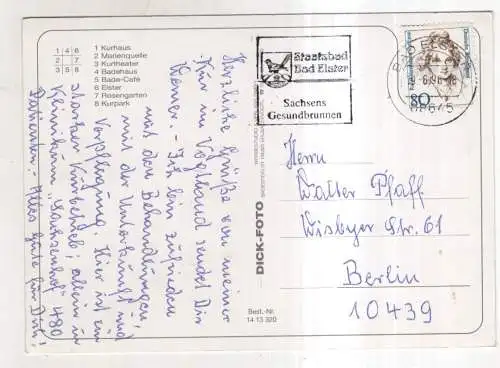 1 4 6
2 7
3 5 8
1 Kurhaus
2 Marienquelle
3 Kurtheater
4 Badehaus
5 Bade-Café
6 Elster
7 Rosengarten
8 Kurpark
Herzliche Grüße von meiner
Kur im Vogtland sendet Dir
Werner. - Ich bin zufrieden
mit den Behandlungen,
mit der Unterkunft und
Verpflegung. Hier ist ein
starker Kurbetrieb; allein im
Klinikum "Sachsenhof" 480
Patienten. Alles Gute für Dich!
DICK-FOTO
Best.-Nr.
14 13 320
Staatsbad
Bad Elster
Sachsens
Gesundbrunnen
BAD ELSTER
08645
80
Herrn
Walter Pfaff
Wisbyer Str. 61
Berlin
10439